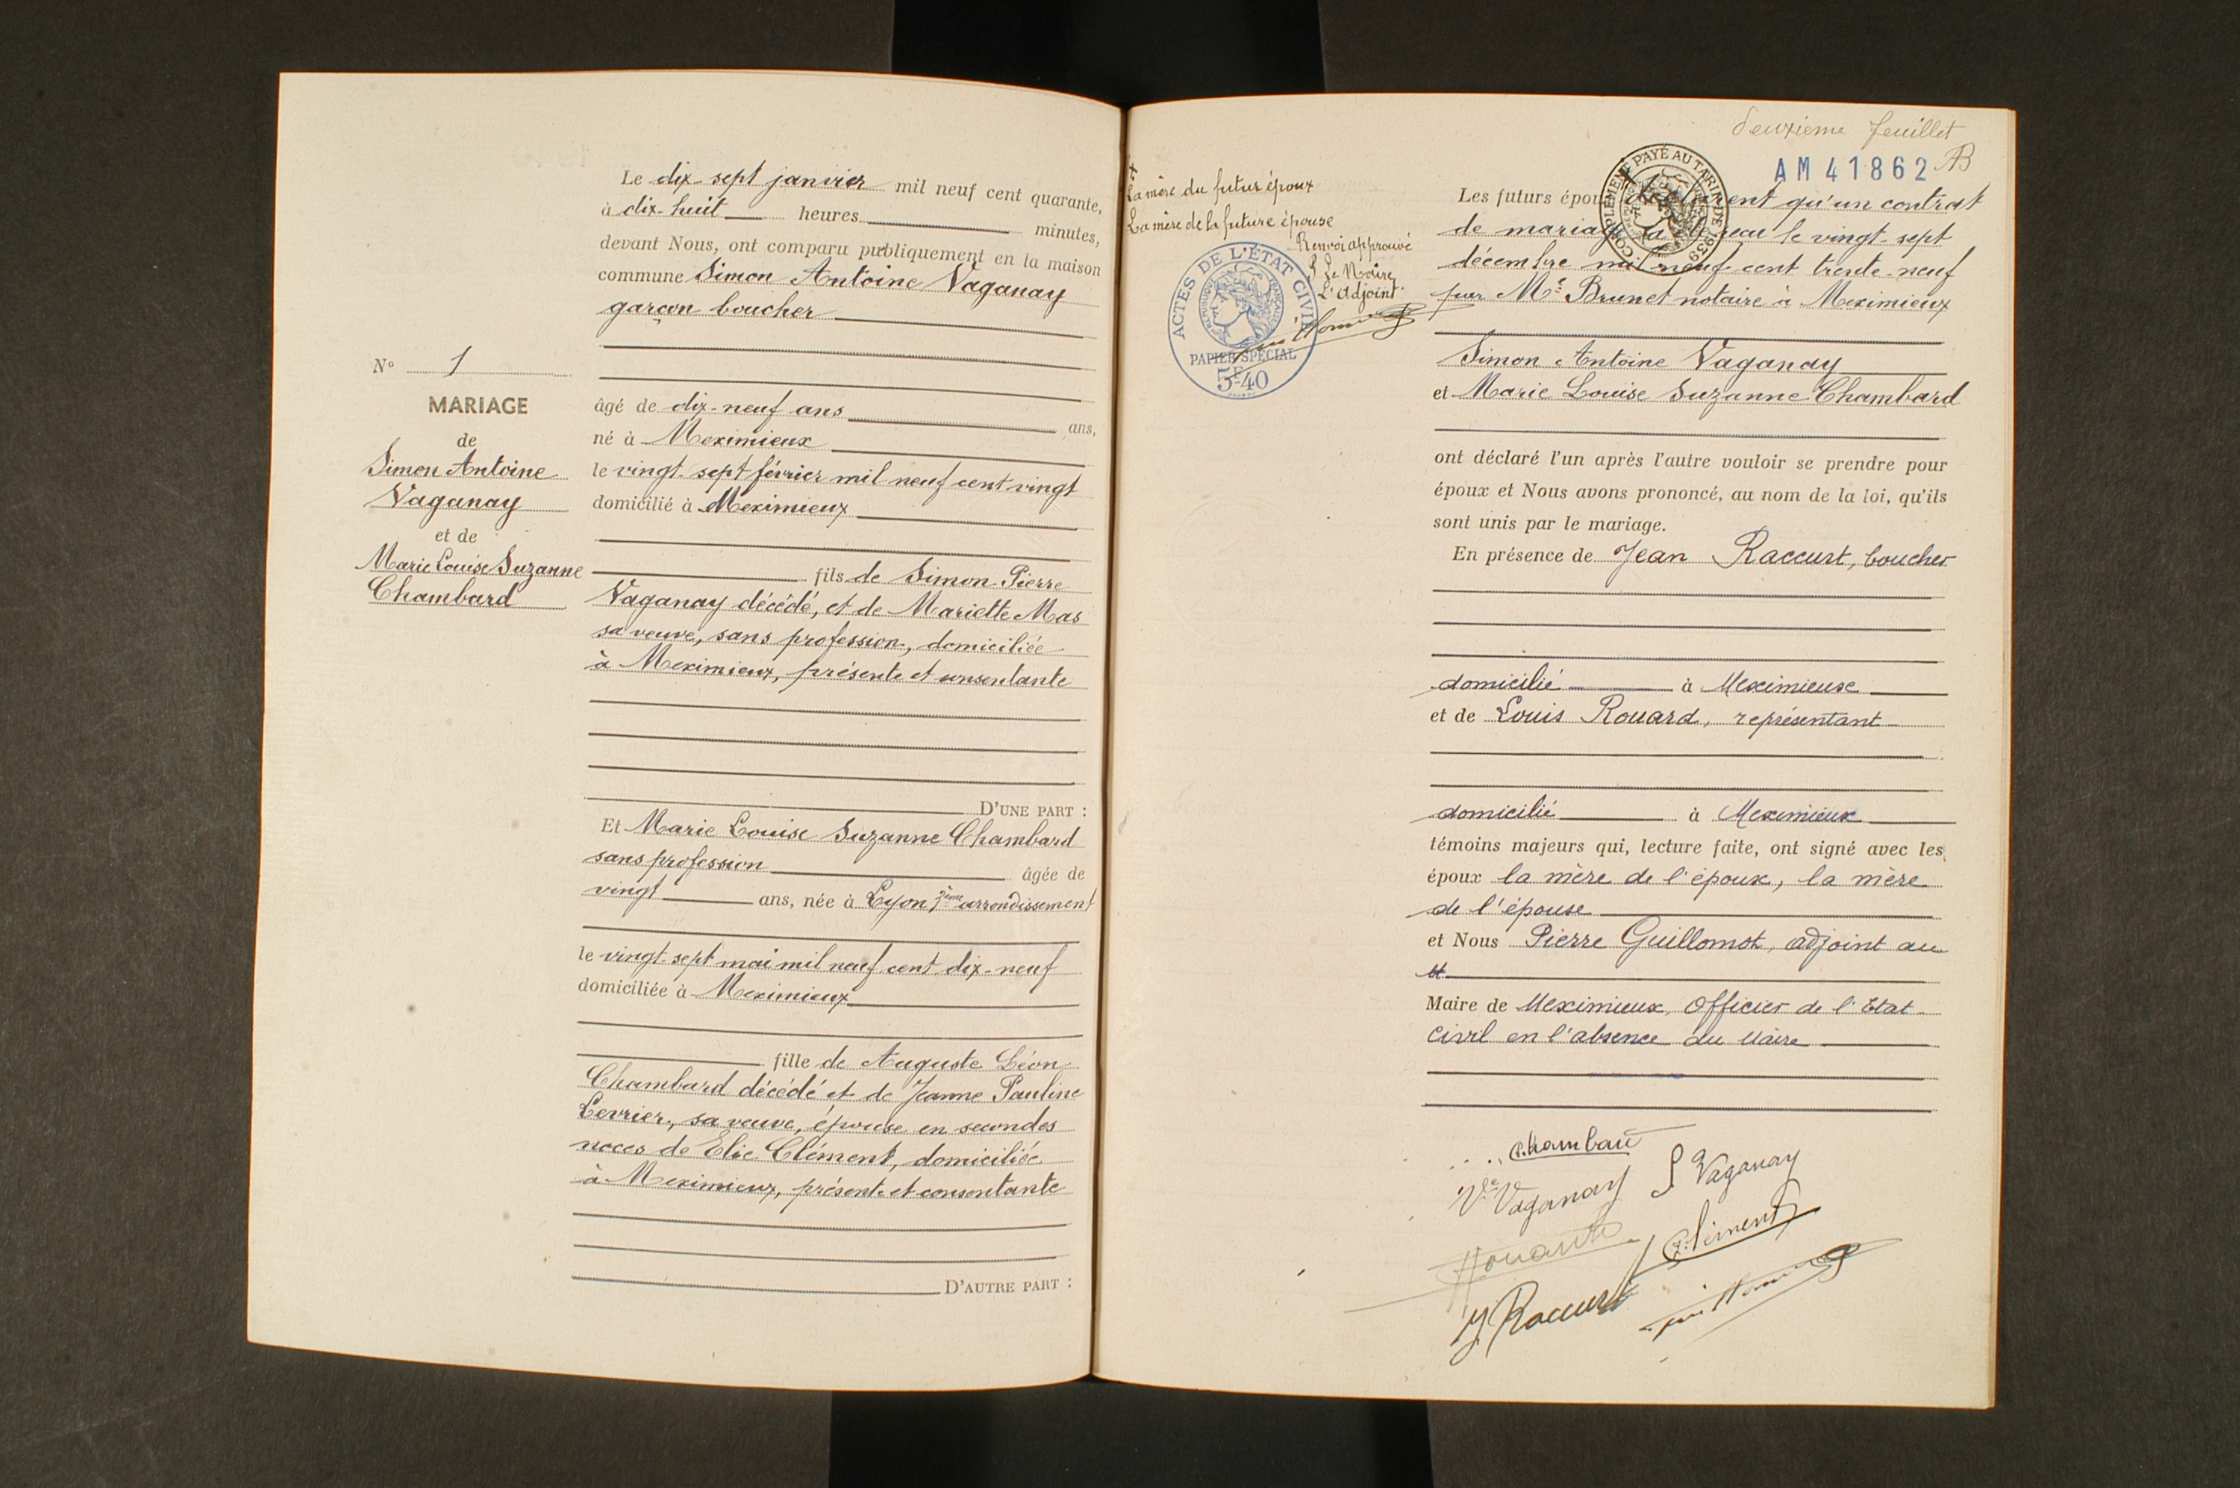 N° 1
MARIAGE
de
Simon Antoine
Vaganay
et de
Marie Louise Suzanne
Chambard
Le dix-sept janvier mil neuf cent quarante,
à dix-huit heures minutes,
devant Nous, ont comparu publiquement en la maison
commune Simon Antoine Vaganay
garçon boucher
âgé de dix-neuf ans ans,
né à Meximieux
le vingt-sept février mil neuf cent vingt
domicilié à Meximieux
fils de Simon Pierre
Vaganay décédé, et de Mariette Mas
sa veuve, sans profession, domiciliée
à Meximieux, présente et consentante
D'UNE PART :
Et Marie Louise Suzanne Chambard
sans profession âgée de
vingt ans, née à Lyon arrondissement
le vingt-sept mai mil neuf cent dix-neuf
domiciliée à Meximieux
fille de Auguste Léon
Chambard décédé et de Jeanne Pauline
Levrier, sa veuve, épouse en secondes
noces de Elie Clément, domiciliée
à Meximieux, présente et consentante
D'AUTRE PART :
La mère du futur époux
La mère de la future épouse
Renvoi approuvé
Le Maire
L'adjoint
ACTES DE L'ÉTAT CIVIL
RÉPUBLIQUE FRANÇAISE
PAPIER SPÉCIAL
5F40
deuxième feuillet
AM 41862 AB
COMPLÉMENT PAYÉ AU TARIF DE 1939
Les futurs époux déclarent qu'un contrat
de mariage a été reçu le vingt-sept
décembre mil neuf cent trente-neuf
par Me Brunet notaire à Meximieux
Simon Antoine Vaganay
et Marie Louise Suzanne Chambard
ont déclaré l'un après l'autre vouloir se prendre pour
époux et Nous avons prononcé, au nom de la loi, qu'ils
sont unis par le mariage.
En présence de Jean Raccurt, boucher
domicilié à Meximieux
et de Louis Rouard, représentant
domicilié à Meximieux
témoins majeurs qui, lecture faite, ont signé avec les
époux la mère de l'époux, la mère
de l'épouse
et Nous Pierre Guillomot, adjoint au
Maire de Meximieux, Officier de l'Etat
Civil en l'absence du Maire
Chambard
Vve Vaganay S Vaganay
Clément
J Raccurt